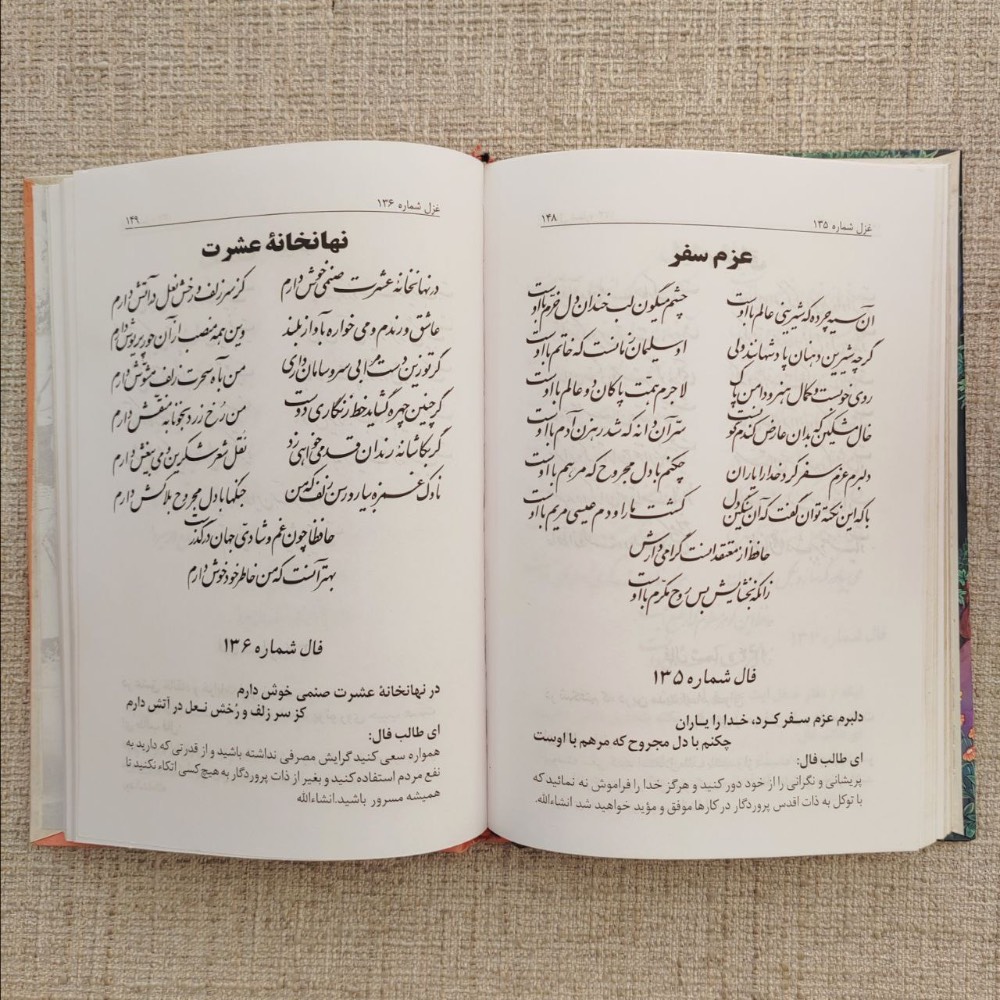 غزل شماره ۱۳۵
۱۴۸
عزم سفر
آن سیه چرده که شیرینی عالم با اوست
چشم میگون لب خندان دل خرم با اوست
گرچه شیرین دهنان پادشهانند ولی
او سلیمان زمانست که خاتم با اوست
روی خوبست و کمال هنر و دامن پاک
لاجرم همت پاکان دو عالم با اوست
خال مشکین که بدان عارض گندم گونست
سر آن دانه که شد رهزن آدم با اوست
دلبرم عزم سفر کرد خدا را یاران
چکنم با دل مجروح که مرهم با اوست
با که این نکته توان گفت که آن سنگین دل
کشت ما را و دم عیسی مریم با اوست
حافظ از معتقدانست گرامی دارش
زانکه بخشایش بس روح مکرم با اوست
فال شماره ۱۳۵
دلبرم عزم سفر کرد، خدا را یاران
چکنم با دل مجروح که مرهم با اوست
ای طالب فال:
پریشانی و نگرانی را از خود دور کنید و هرگز خدا را فراموش نه نمائید که
با توکل به ذات اقدس پروردگار در کارها موفق و مؤید خواهید شد انشاءالله.
غزل شماره ۱۳۶
۱۴۹
نهانخانهٔ عشرت
در نهانخانهٔ عشرت صنمی خوش دارم
کز سر زلف و رخش نعل در آتش دارم
عاشق و رندم و می خواره به آواز بلند
وین همه منصب از آن حور پریوش دارم
گر تو زین دست مرا بی سر و سامان داری
من به آه سحرت زلف مشوش دارم
گر چنین چهره گشاید خط زنگاری دوست
من رخ زرد بخونابه منقش دارم
گر بکاشانهٔ رندان قدمی خواهی زد
نقل شعر شکرین و می بیغش دارم
ناوک غمزه بیار و رسن زلف که من
جنگها با دل مجروح بلاکش دارم
حافظا چون غم و شادی جهان در گذرست
بهتر آنست که من خاطر خود خوش دارم
فال شماره ۱۳۶
در نهانخانهٔ عشرت صنمی خوش دارم
کز سر زلف و رُخش نعل در آتش دارم
ای طالب فال:
همواره سعی کنید گرایش مصرفی نداشته باشید و از قدرتی که دارید به
نفع مردم استفاده کنید و بغیر از ذات پروردگار به هیچ کسی اتکاء نکنید تا
همیشه مسرور باشید.انشاءالله